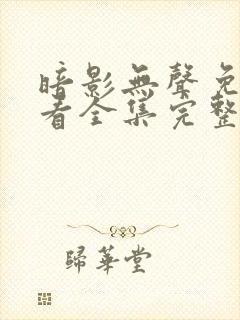 暗影無聲免
看全集完整
歸華堂